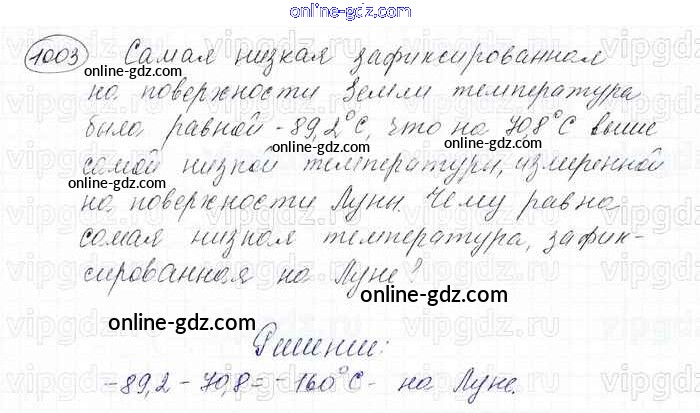 online-gdz.com
1003 Самая низкая зафиксированная
online-gdz.com
online-gdz.com
на поверхности Земли температура
была равной -89,2°С, что на 70,8°С выше
самой низкой температуры, измеренной
online-gdz.com
online-gdz.com
на поверхности Луны. Чему равна
самая низкая температура, зафик-
сированная на Луне?
online-gdz.com
online-gdz.com
Решение:
-89,2 - 70,8 = -160°С - на Луне.